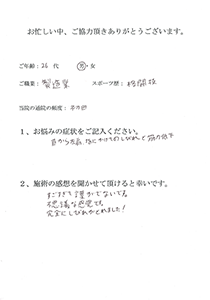 お忙しい中、ご協力頂きありがとうございます。
ご年齢：26 代 男・女
ご職業：製造業 スポーツ歴：格闘技
当院の通院の頻度：
1、お悩みの症状をご記入ください。
首から左肩、腕にかけてのしびれと筋力低下
2、施術の感想を聞かせて頂けると幸いです。
すごすぎて謎がでないです。
不思議な感覚です。
完全にしびれがとれました！